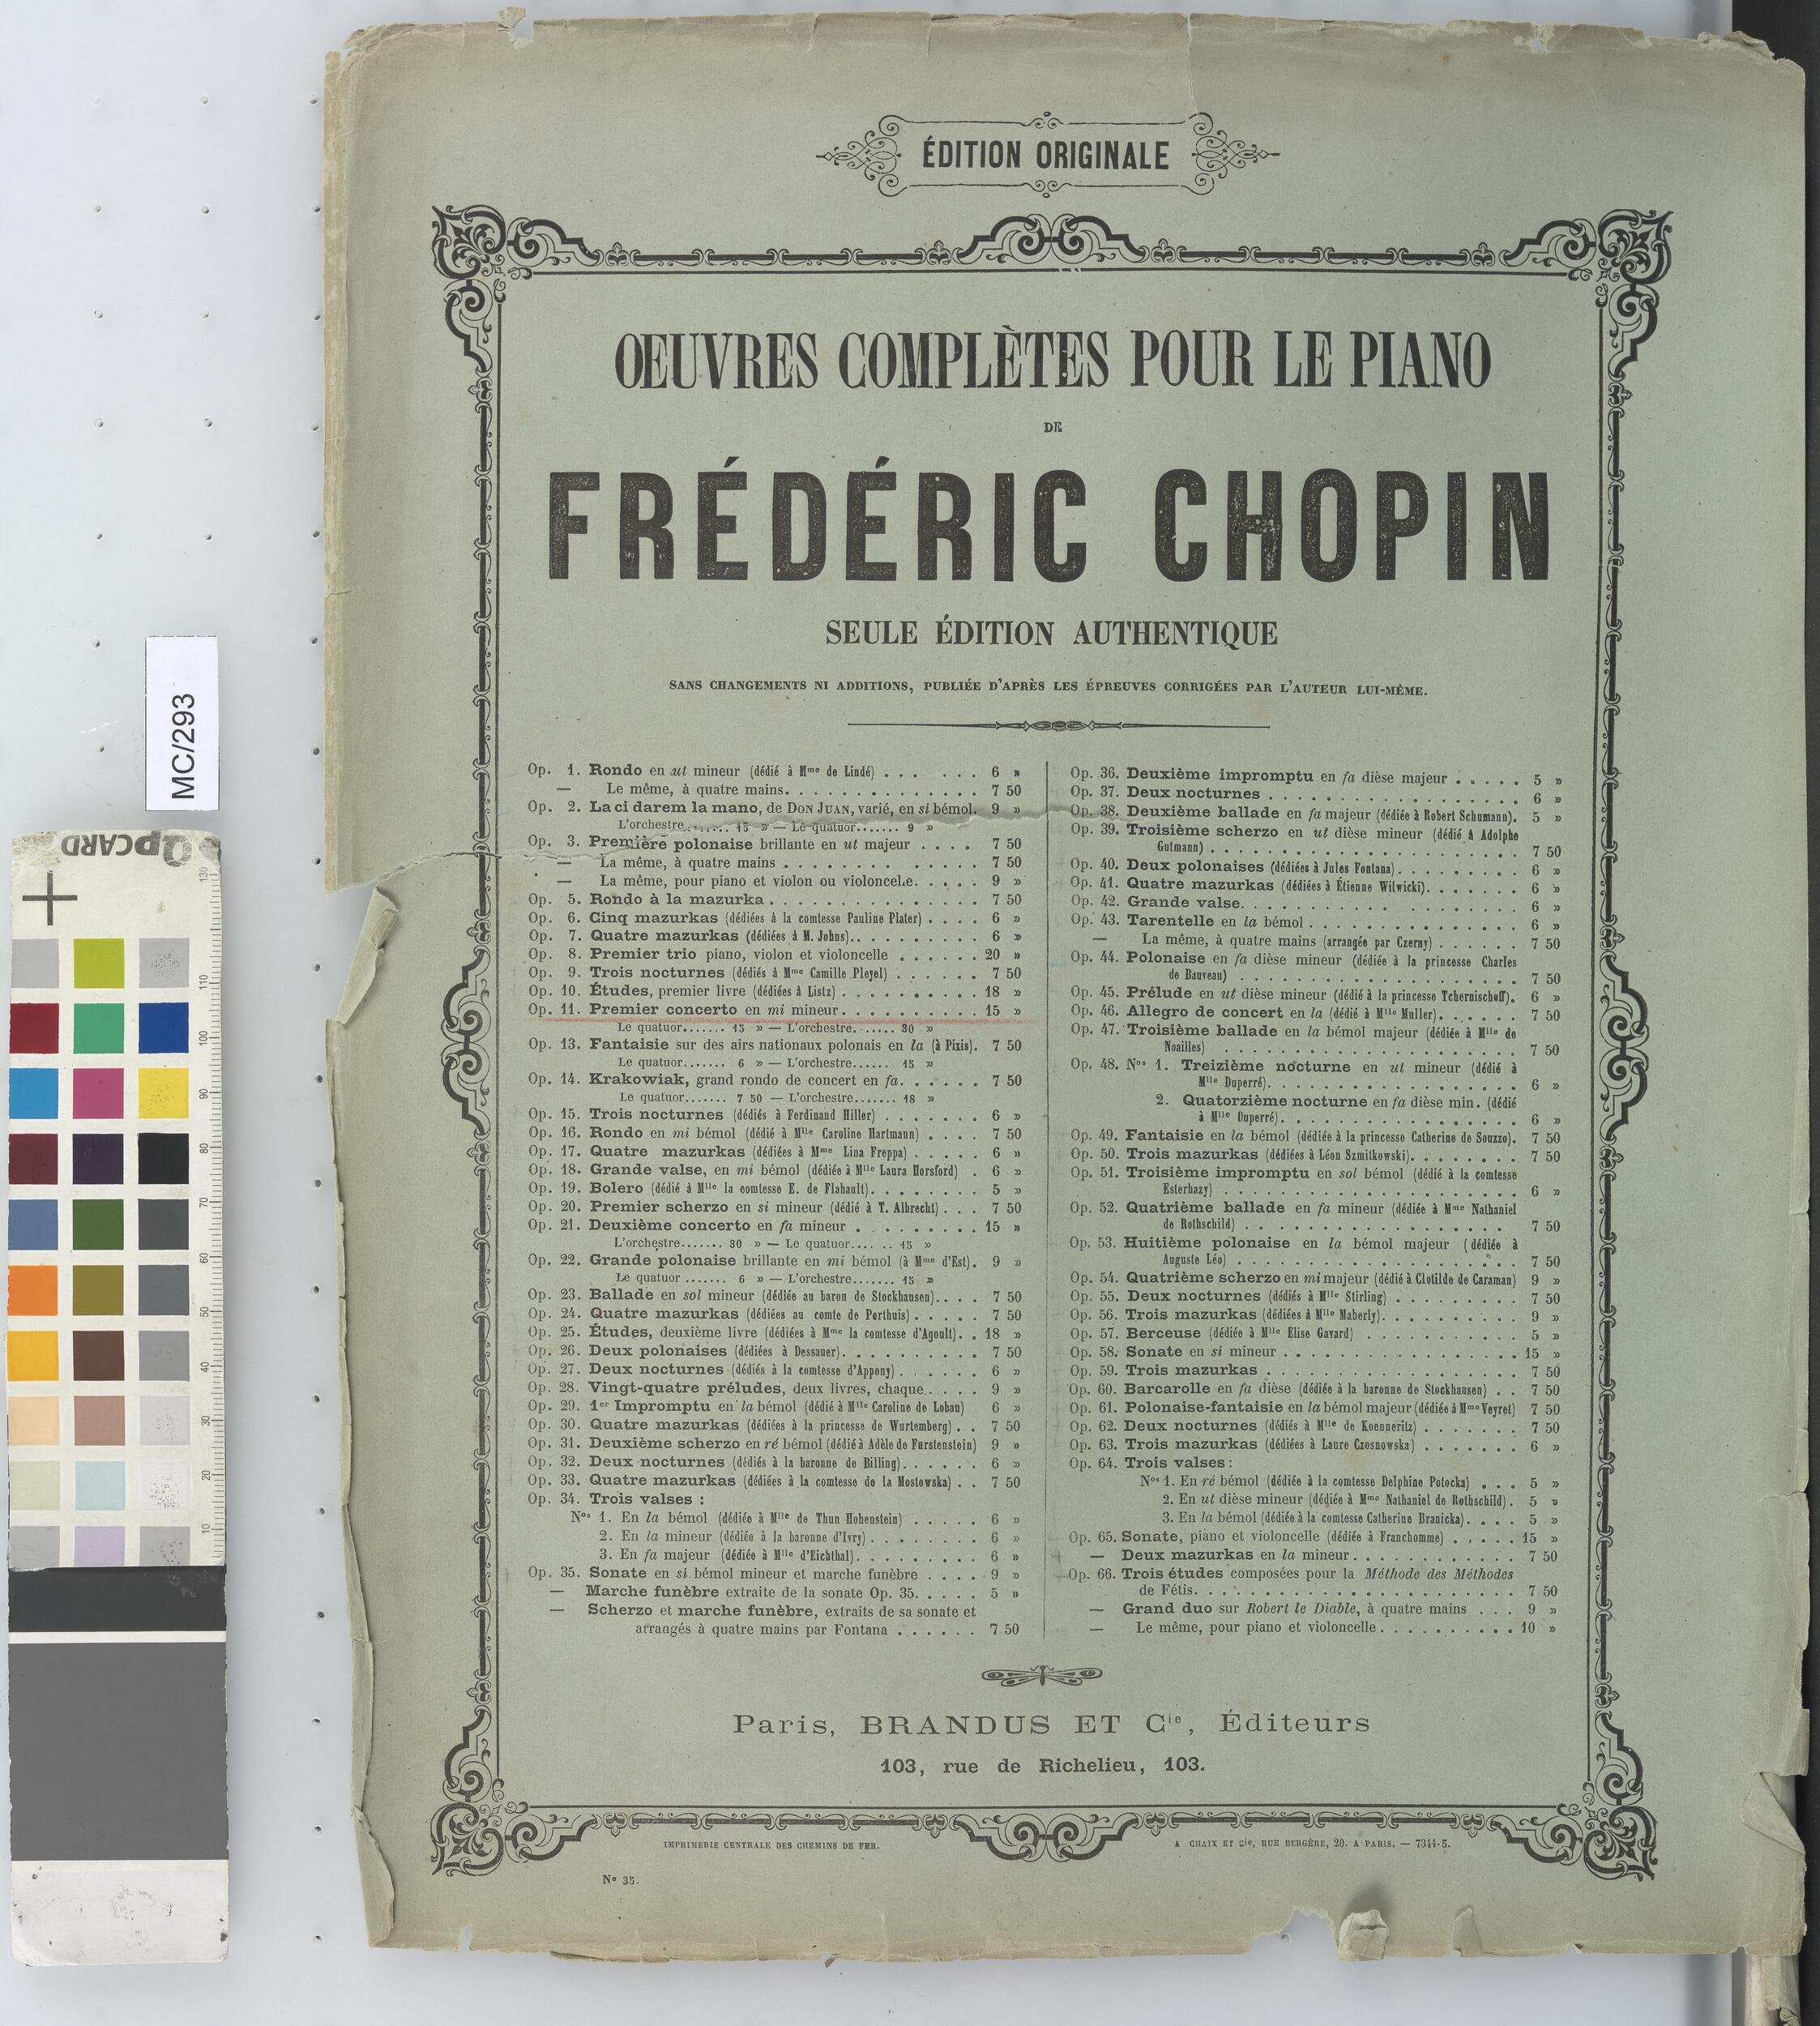 ÉDITION ORIGINALE
OEUVRES COMPLÈTES POUR LE PIANO
DE
FRÉDÉRIC CHOPIN
SEULE ÉDITION AUTHENTIQUE
SANS CHANGEMENTS NI ADDITIONS, PUBLIÉE D'APRÈS LES ÉPREUVES CORRIGÉES PAR L'AUTEUR LUI-MÊME.
Op. 1. Rondo en ut mineur (dédié à Mme de Lindé) . . . . . . 6 »
— Le même, à quatre mains. . . . . . . . . . . . . . . 7 50
Op. 2. La ci darem la mano, de DON JUAN, varié, en si bémol. 9 »
L'orchestre....... 15 » — Le quatuor....... 9 »
Op. 3. Première polonaise brillante en ut majeur . . . . 7 50
— La même, à quatre mains . . . . . . . . . 7 50
— La même, pour piano et violon ou violoncelle. . . . . 9 »
Op. 5. Rondo à la mazurka . . . . . . . . . . . . . . . . 7 50
Op. 6. Cinq mazurkas (dédiées à la comtesse Pauline Plater) . . . . 6 »
Op. 7. Quatre mazurkas (dédiées à M. Johns). . . . . . . . . . 6 »
Op. 8. Premier trio piano, violon et violoncelle . . . . . . 20 »
Op. 9. Trois nocturnes (dédiés à Mme Camille Pleyel) . . . . . . 7 50
Op. 10. Études, premier livre (dédiées à Listz) . . . . . . . . . . 18 »
Op. 11. Premier concerto en mi mineur. . . . . . . . . . . 15 »
Le quatuor....... 15 » — L'orchestre....... 30 »
Op. 13. Fantaisie sur des airs nationaux polonais en la (à Pixis). 7 50
Le quatuor....... 6 » — L'orchestre...... 15 »
Op. 14. Krakowiak, grand rondo de concert en fa. . . . . . 7 50
Le quatuor....... 7 50 — L'orchestre....... 18 »
Op. 15. Trois nocturnes (dédiés à Ferdinand Hiller) . . . . . . . 6 »
Op. 16. Rondo en mi bémol (dédié à Mlle Caroline Hartmann) . . . . 7 50
Op. 17. Quatre mazurkas (dédiées à Mme Lina Freppa) . . . . . 6 »
Op. 18. Grande valse, en mi bémol (dédiée à Mlle Laura Horsford) . 6 »
Op. 19. Bolero (dédié à Mlle la comtesse E. de Flahault). . . . . . . . 5 »
Op. 20. Premier scherzo en si mineur (dédié à T. Albrecht) . . . 7 50
Op. 21. Deuxième concerto en fa mineur . . . . . . . . . 15 »
L'orchestre....... 30 » — Le quatuor....... 15 »
Op. 22. Grande polonaise brillante en mi bémol (à Mme d'Est). 9 »
Le quatuor ....... 6 » — L'orchestre....... 15 »
Op. 23. Ballade en sol mineur (dédiée au baron de Stockhausen). . . . 7 50
Op. 24. Quatre mazurkas (dédiées au comte de Perthuis) . . . . . 7 50
Op. 25. Études, deuxième livre (dédiées à Mme la comtesse d'Agoult). . 18 »
Op. 26. Deux polonaises (dédiées à Dessauer). . . . . . . . . . 7 50
Op. 27. Deux nocturnes (dédiés à la comtesse d'Appony) . . . . . . 6 »
Op. 28. Vingt-quatre préludes, deux livres, chaque . . . . 9 »
Op. 29. 1er Impromptu en la bémol (dédié à Mlle Caroline de Lobau) 6 »
Op. 30. Quatre mazurkas (dédiées à la princesse de Wurtemberg) . . 7 50
Op. 31. Deuxième scherzo en ré bémol (dédié à Adèle de Furstenstein) 9 »
Op. 32. Deux nocturnes (dédiés à la baronne de Billing). . . . . . 6 »
Op. 33. Quatre mazurkas (dédiées à la comtesse de la Mostowska) . . 7 50
Op. 34. Trois valses :
Nos 1. En la bémol (dédiée à Mlle de Thun Hohenstein) . . . . . 6 »
2. En la mineur (dédiée à la baronne d'Ivry) . . . . . . . . 6 »
3. En fa majeur (dédiée à Mlle d'Eichthal). . . . . . . . . 6 »
Op. 35. Sonate en si bémol mineur et marche funèbre . . . . 9 »
— Marche funèbre extraite de la sonate Op. 35. . . . . 5 »
— Scherzo et marche funèbre, extraits de sa sonate et
arrangés à quatre mains par Fontana . . . . . . 7 50
Op. 36. Deuxième impromptu en fa dièse majeur . . . . . 5 »
Op. 37. Deux nocturnes . . . . . . . . . . . . . . . . . . . 6 »
Op. 38. Deuxième ballade en fa majeur (dédiée à Robert Schumann). 5 »
Op. 39. Troisième scherzo en ut dièse mineur (dédié à Adolphe
Gutmann) . . . . . . . . . . . . . . . . . . . . . . 7 50
Op. 40. Deux polonaises (dédiées à Jules Fontana) . . . . . . . . . 6 »
Op. 41. Quatre mazurkas (dédiées à Étienne Witwicki). . . . . . . 6 »
Op. 42. Grande valse. . . . . . . . . . . . . . . . . . . 6 »
Op. 43. Tarentelle en la bémol . . . . . . . . . . . . . . . 6 »
— La même, à quatre mains (arrangée par Czerny) . . . . . . 7 50
Op. 44. Polonaise en fa dièse mineur (dédiée à la princesse Charles
de Bauveau) . . . . . . . . . . . . . . . . . . . . 7 50
Op. 45. Prélude en ut dièse mineur (dédié à la princesse Tchernischeff). 6 »
Op. 46. Allegro de concert en la (dédié à Mlle Muller). . . . . . 7 50
Op. 47. Troisième ballade en la bémol majeur (dédiée à Mlle de
Noailles) . . . . . . . . . . . . . . . . . . . . . 7 50
Op. 48. Nos 1. Treizième nocturne en ut mineur (dédié à
Mlle Duperré). . . . . . . . . . . . . . . . . . 6 »
2. Quatorzième nocturne en fa dièse min. (dédié
à Mlle Duperré). . . . . . . . . . . . . . . . . 6 »
Op. 49. Fantaisie en la bémol (dédiée à la princesse Catherine de Souzzo). 7 50
Op. 50. Trois mazurkas (dédiées à Léon Szmitkowski). . . . . . . . 7 50
Op. 51. Troisième impromptu en sol bémol (dédié à la comtesse
Esterhazy) . . . . . . . . . . . . . . . . . . . . . 6 »
Op. 52. Quatrième ballade en fa mineur (dédiée à Mme Nathaniel
de Rothschild) . . . . . . . . . . . . . . . . . . 7 50
Op. 53. Huitième polonaise en la bémol majeur (dédiée à
Auguste Léo) . . . . . . . . . . . . . . . . . . . . 7 50
Op. 54. Quatrième scherzo en mi majeur (dédié à Clotilde de Caraman) 9 »
Op. 55. Deux nocturnes (dédiés à Mlle Stirling) . . . . . . . . . 7 50
Op. 56. Trois mazurkas (dédiées à Mlle Maberly). . . . . . . . . . 9 »
Op. 57. Berceuse (dédiée à Mlle Élise Gavard) . . . . . . . . . . . 5 »
Op. 58. Sonate en si mineur . . . . . . . . . . . . . . . . . 15 »
Op. 59. Trois mazurkas . . . . . . . . . . . . . . . . . . . 7 50
Op. 60. Barcarolle en fa dièse (dédiée à la baronne de Stockhausen) . . 7 50
Op. 61. Polonaise-fantaisie en la bémol majeur (dédiée à Mme Veyret) 7 50
Op. 62. Deux nocturnes (dédiés à Mlle de Koenneritz) . . . . . . . 7 50
Op. 63. Trois mazurkas (dédiées à Laure Czosnowska) . . . . . . . 6 »
Op. 64. Trois valses :
Nos 1. En ré bémol (dédiée à la comtesse Delphine Potocka) . . . 5 »
2. En ut dièse mineur (dédiée à Mme Nathaniel de Rothschild) . 5 »
3. En la bémol (dédiée à la comtesse Catherine Branicka). . . . 5 »
Op. 65. Sonate, piano et violoncelle (dédiée à Franchomme) . . . . . 15 »
— Deux mazurkas en la mineur . . . . . . . . . . . . . 7 50
Op. 66. Trois études composées pour la Méthode des Méthodes
de Fétis. . . . . . . . . . . . . . . . . . . . . . . 7 50
— Grand duo sur Robert le Diable, à quatre mains . . . 9 »
— Le même, pour piano et violoncelle . . . . . . . . . . 10 »
Paris, BRANDUS ET Cie, Éditeurs
103, rue de Richelieu, 103.
IMPRIMERIE CENTRALE DES CHEMINS DE FER.
A CHAIX ET Cie, RUE BERGÈRE, 20. A PARIS. — 7344-5.
No 35.
MC/293
QPCARD
130
110
100
90
80
70
60
50
40
30
20
10